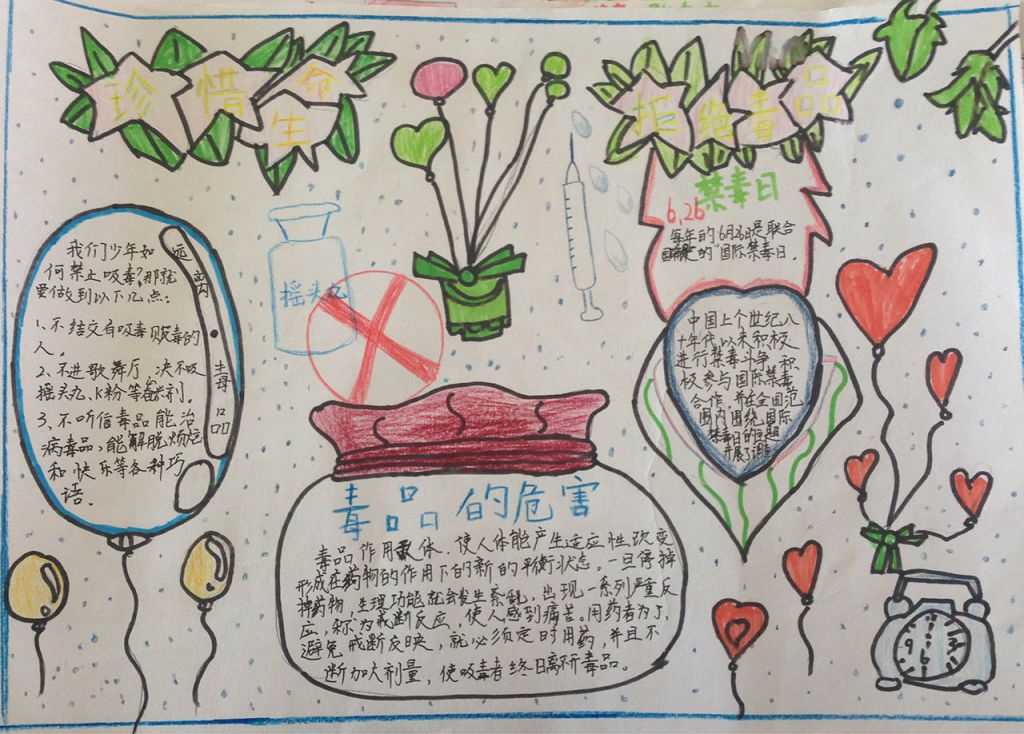 珍惜生命
拒绝毒品
禁毒日
6.26
每年的6月26日是联合
国确定的"国际禁毒日.
我们少年如
何禁止吸毒?那就
要做到以下几点:
1、不结交有吸毒贩毒的
人.
2、不进歌舞厅,决不吸
摇头丸、K粉等兴奋剂.
3、不听信毒品能治
病毒品,能解脱烦恼
和快乐等各种巧
语.
远离·毒品
摇头丸
中国上个世纪八
十年代以来积极
进行禁毒斗争,积
极参与国际禁毒
合作,并在全国范
围内围绕国际
禁毒日的主题
开展了
毒品的危害
毒品作用人体.使人体能产生适应性改变
形成在药物的作用下的新的平衡状态.一旦停掉
药物,生理功能就会发生紊乱,出现一系列严重反
应,称为戒断反应,使人感到痛苦.用药者为了
避免戒断反映,就必须定时用药,并且不
断加大剂量,使吸毒者终日离不开毒品.
12
9
3
6